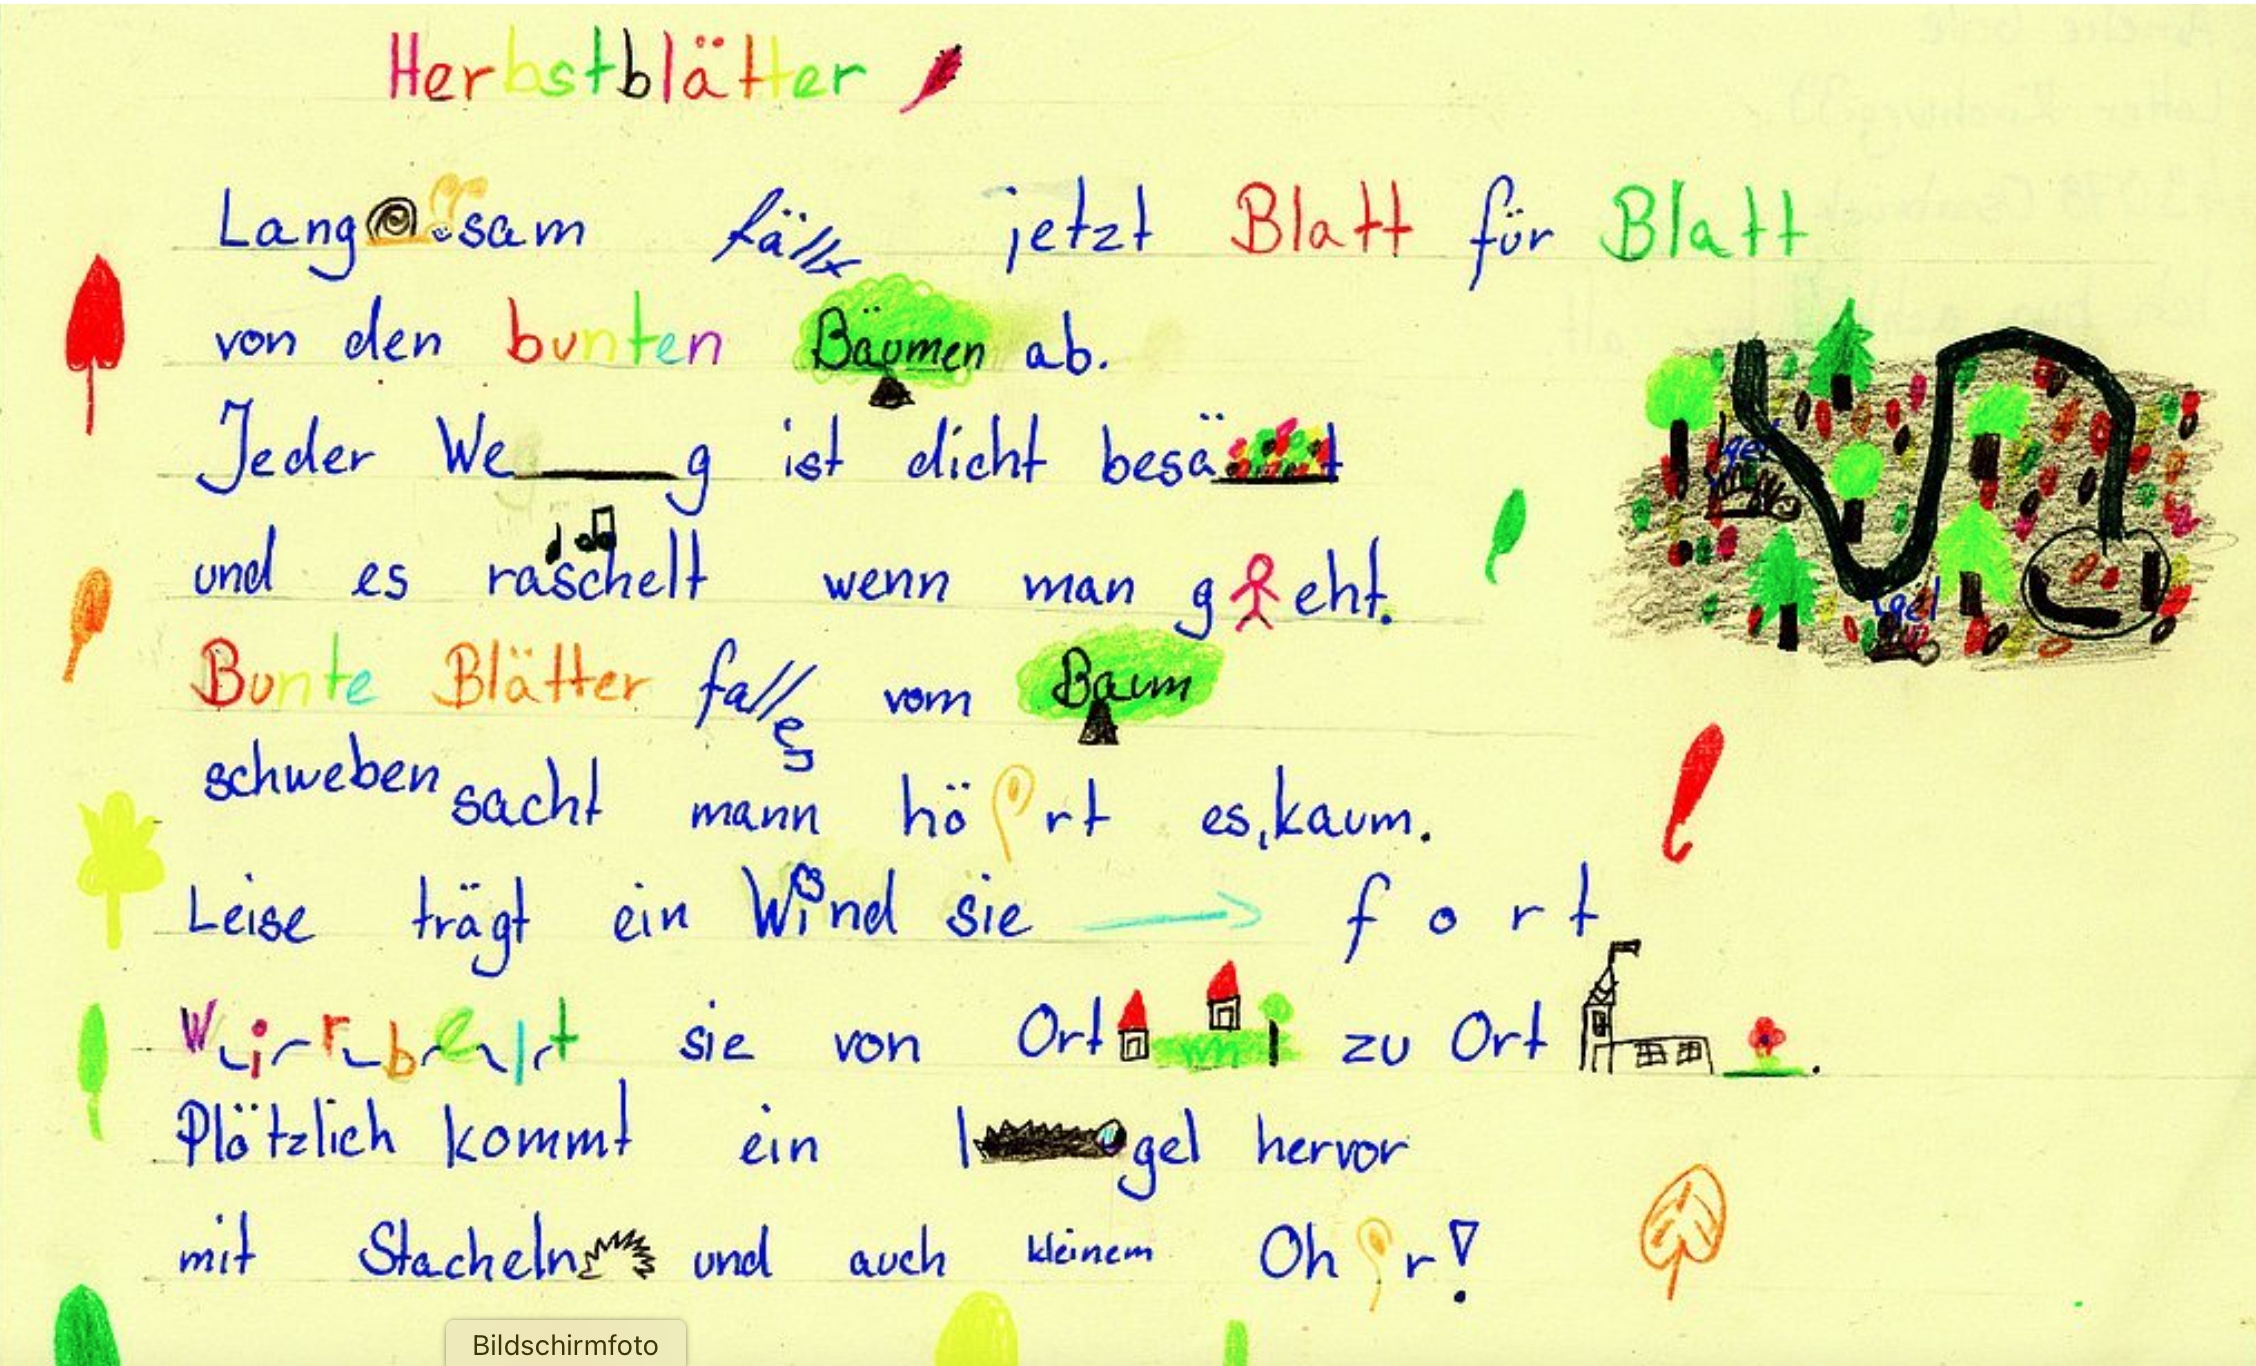 Herbstblätter
Langsam fällt jetzt Blatt für Blatt
von den bunten Bäumen ab.
Jeder Weg ist dicht besät
und es raschelt wenn man geht.
Bunte Blätter fallen vom Baum
schweben sacht mann hört es, kaum.
Leise trägt ein Wind sie fort
Wirbelt sie von Ort zu Ort.
Plötzlich kommt ein Igel hervor
mit Stacheln und auch kleinem Ohr!
Igel
Igel
Bildschirmfoto